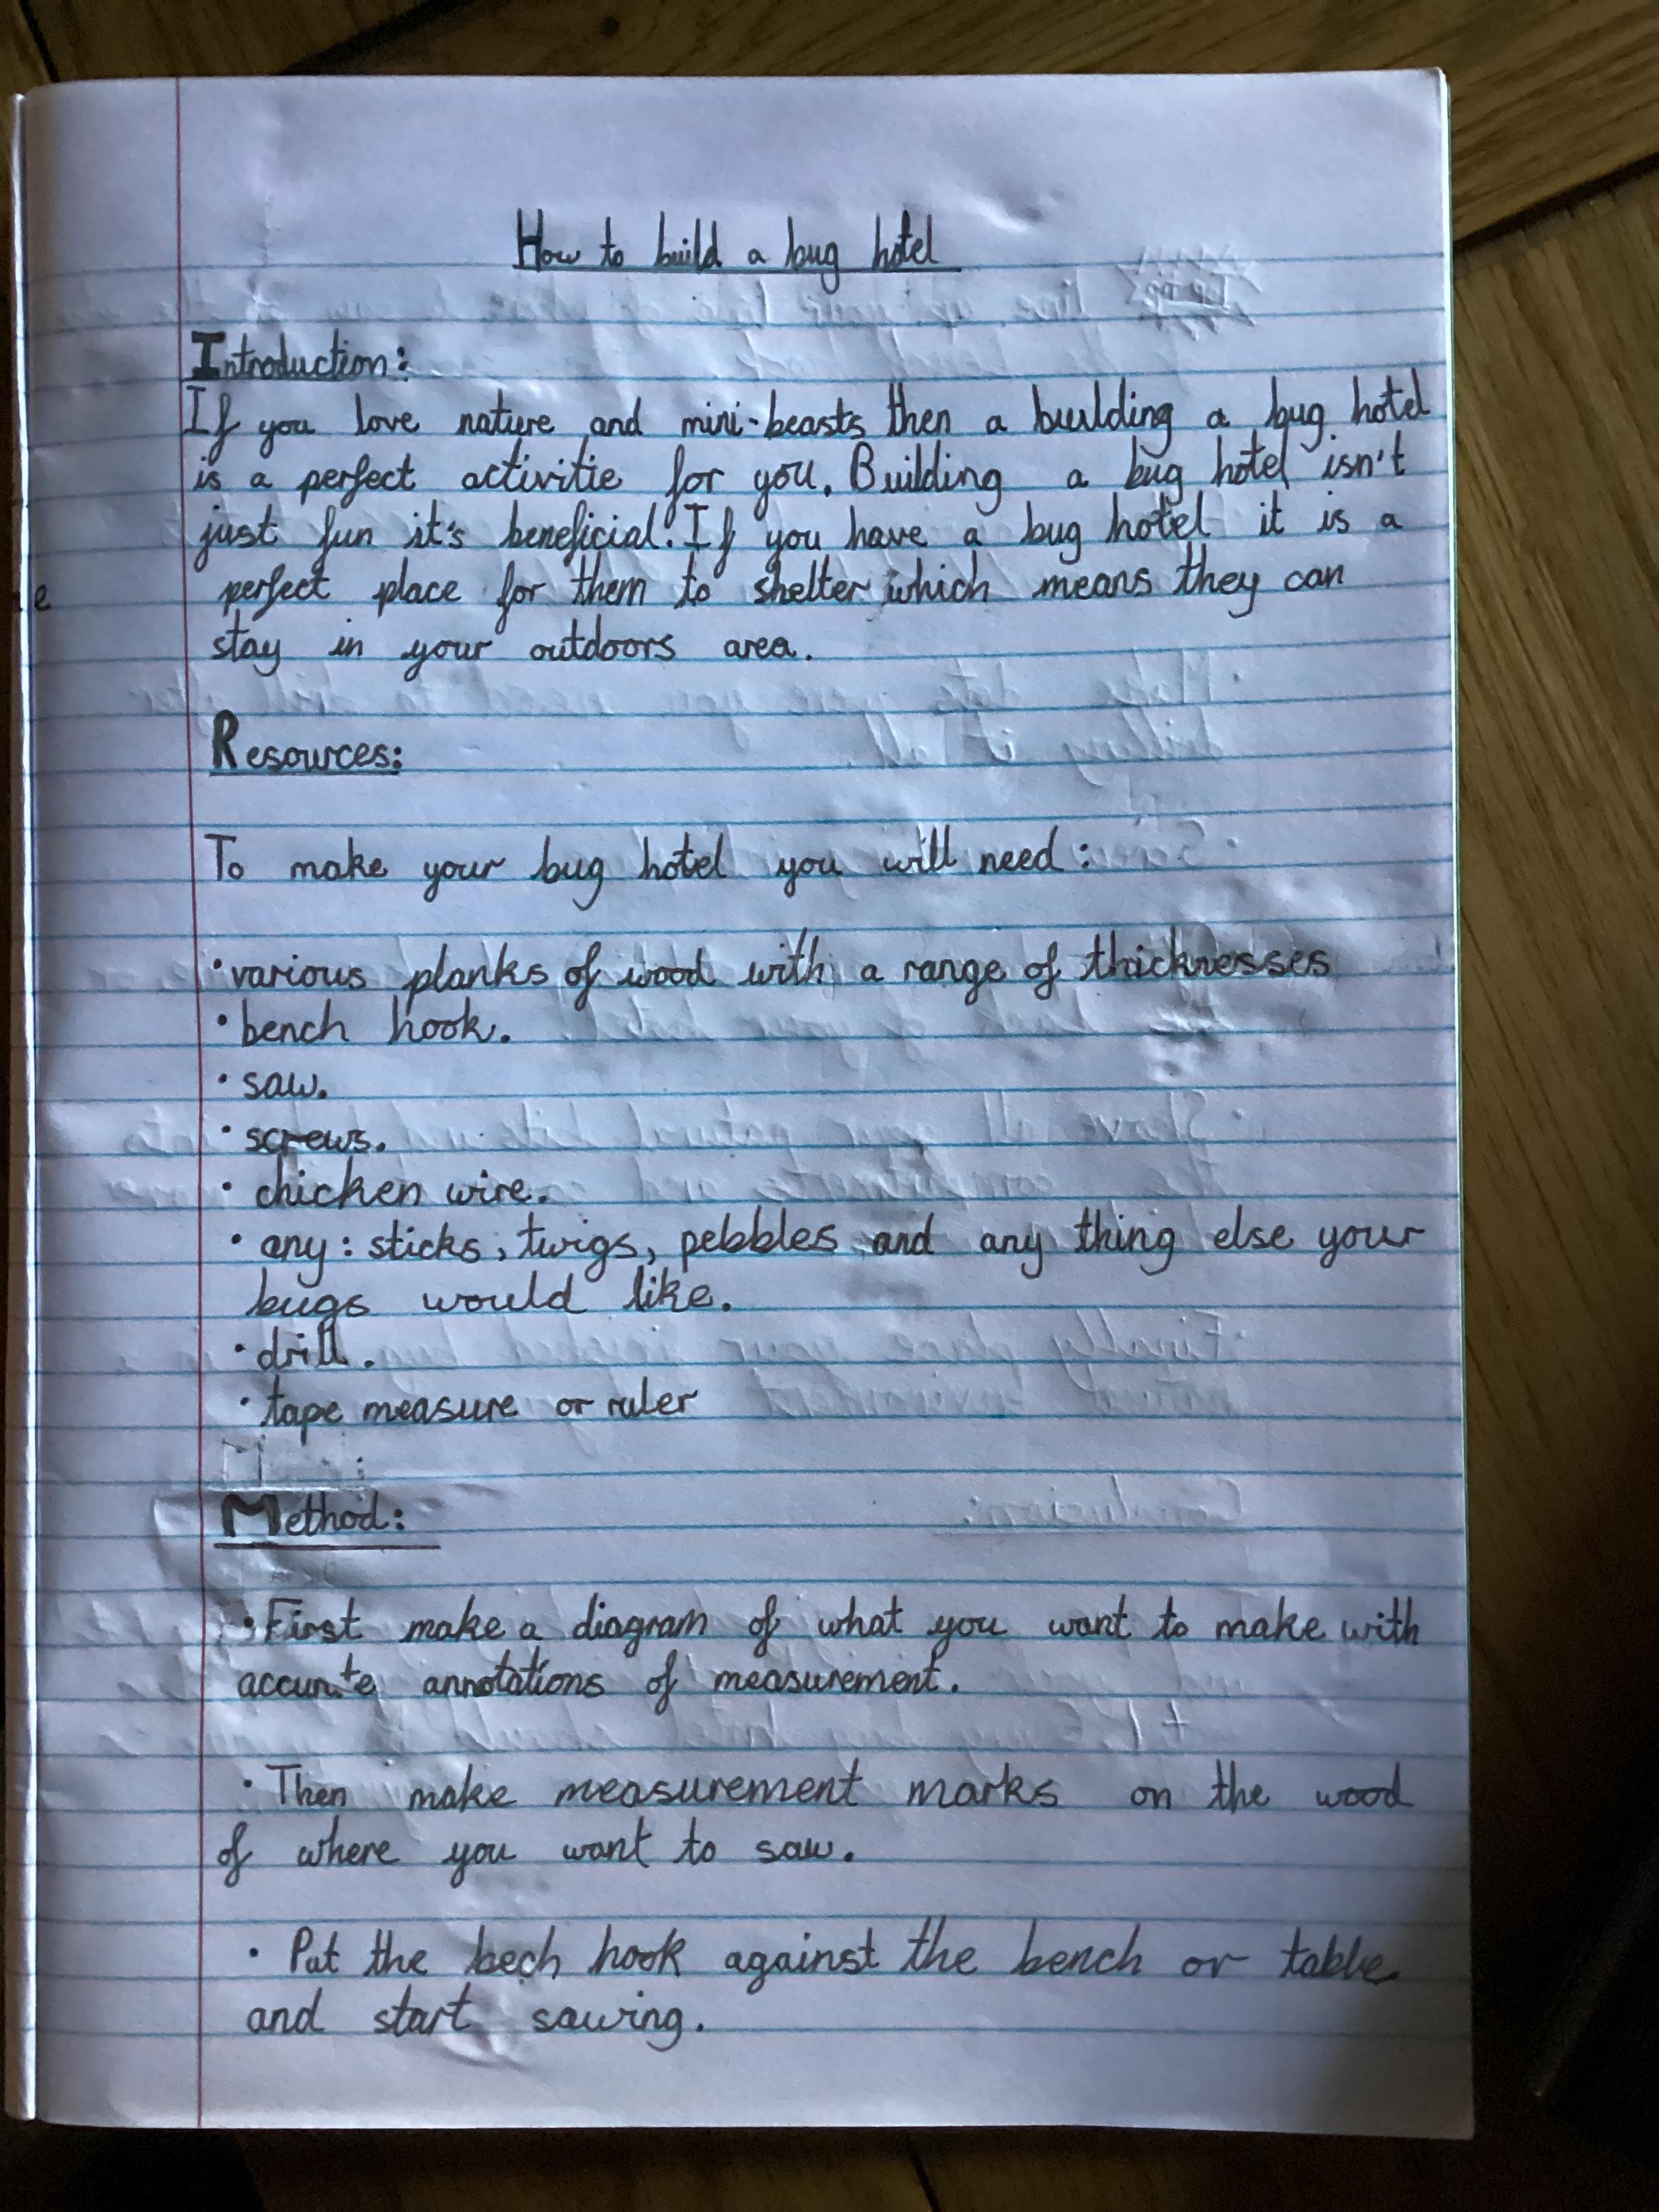 How to build a bug hotel
Introduction:
If you love nature and mini-beasts then a building a bug hotel
is a perfect activitie for you. Building a bug hotel isn't
just fun it's beneficial. If you have a bug hotel it is a
perfect place for them to shelter which means they can
stay in your outdoors area.
Resources:
To make your bug hotel you will need:
• various planks of wood with a range of thicknesses
• bench hook.
• saw.
• screws.
• chicken wire.
• any: sticks, twigs, pebbles and any thing else your
bugs would like.
• drill.
• tape measure or ruler
Method:
• First make a diagram of what you want to make with
accurate annotations of measurement.
• Then make measurement marks on the wood
of where you want to saw.
• Put the bech hook against the bench or table
and start sawing.